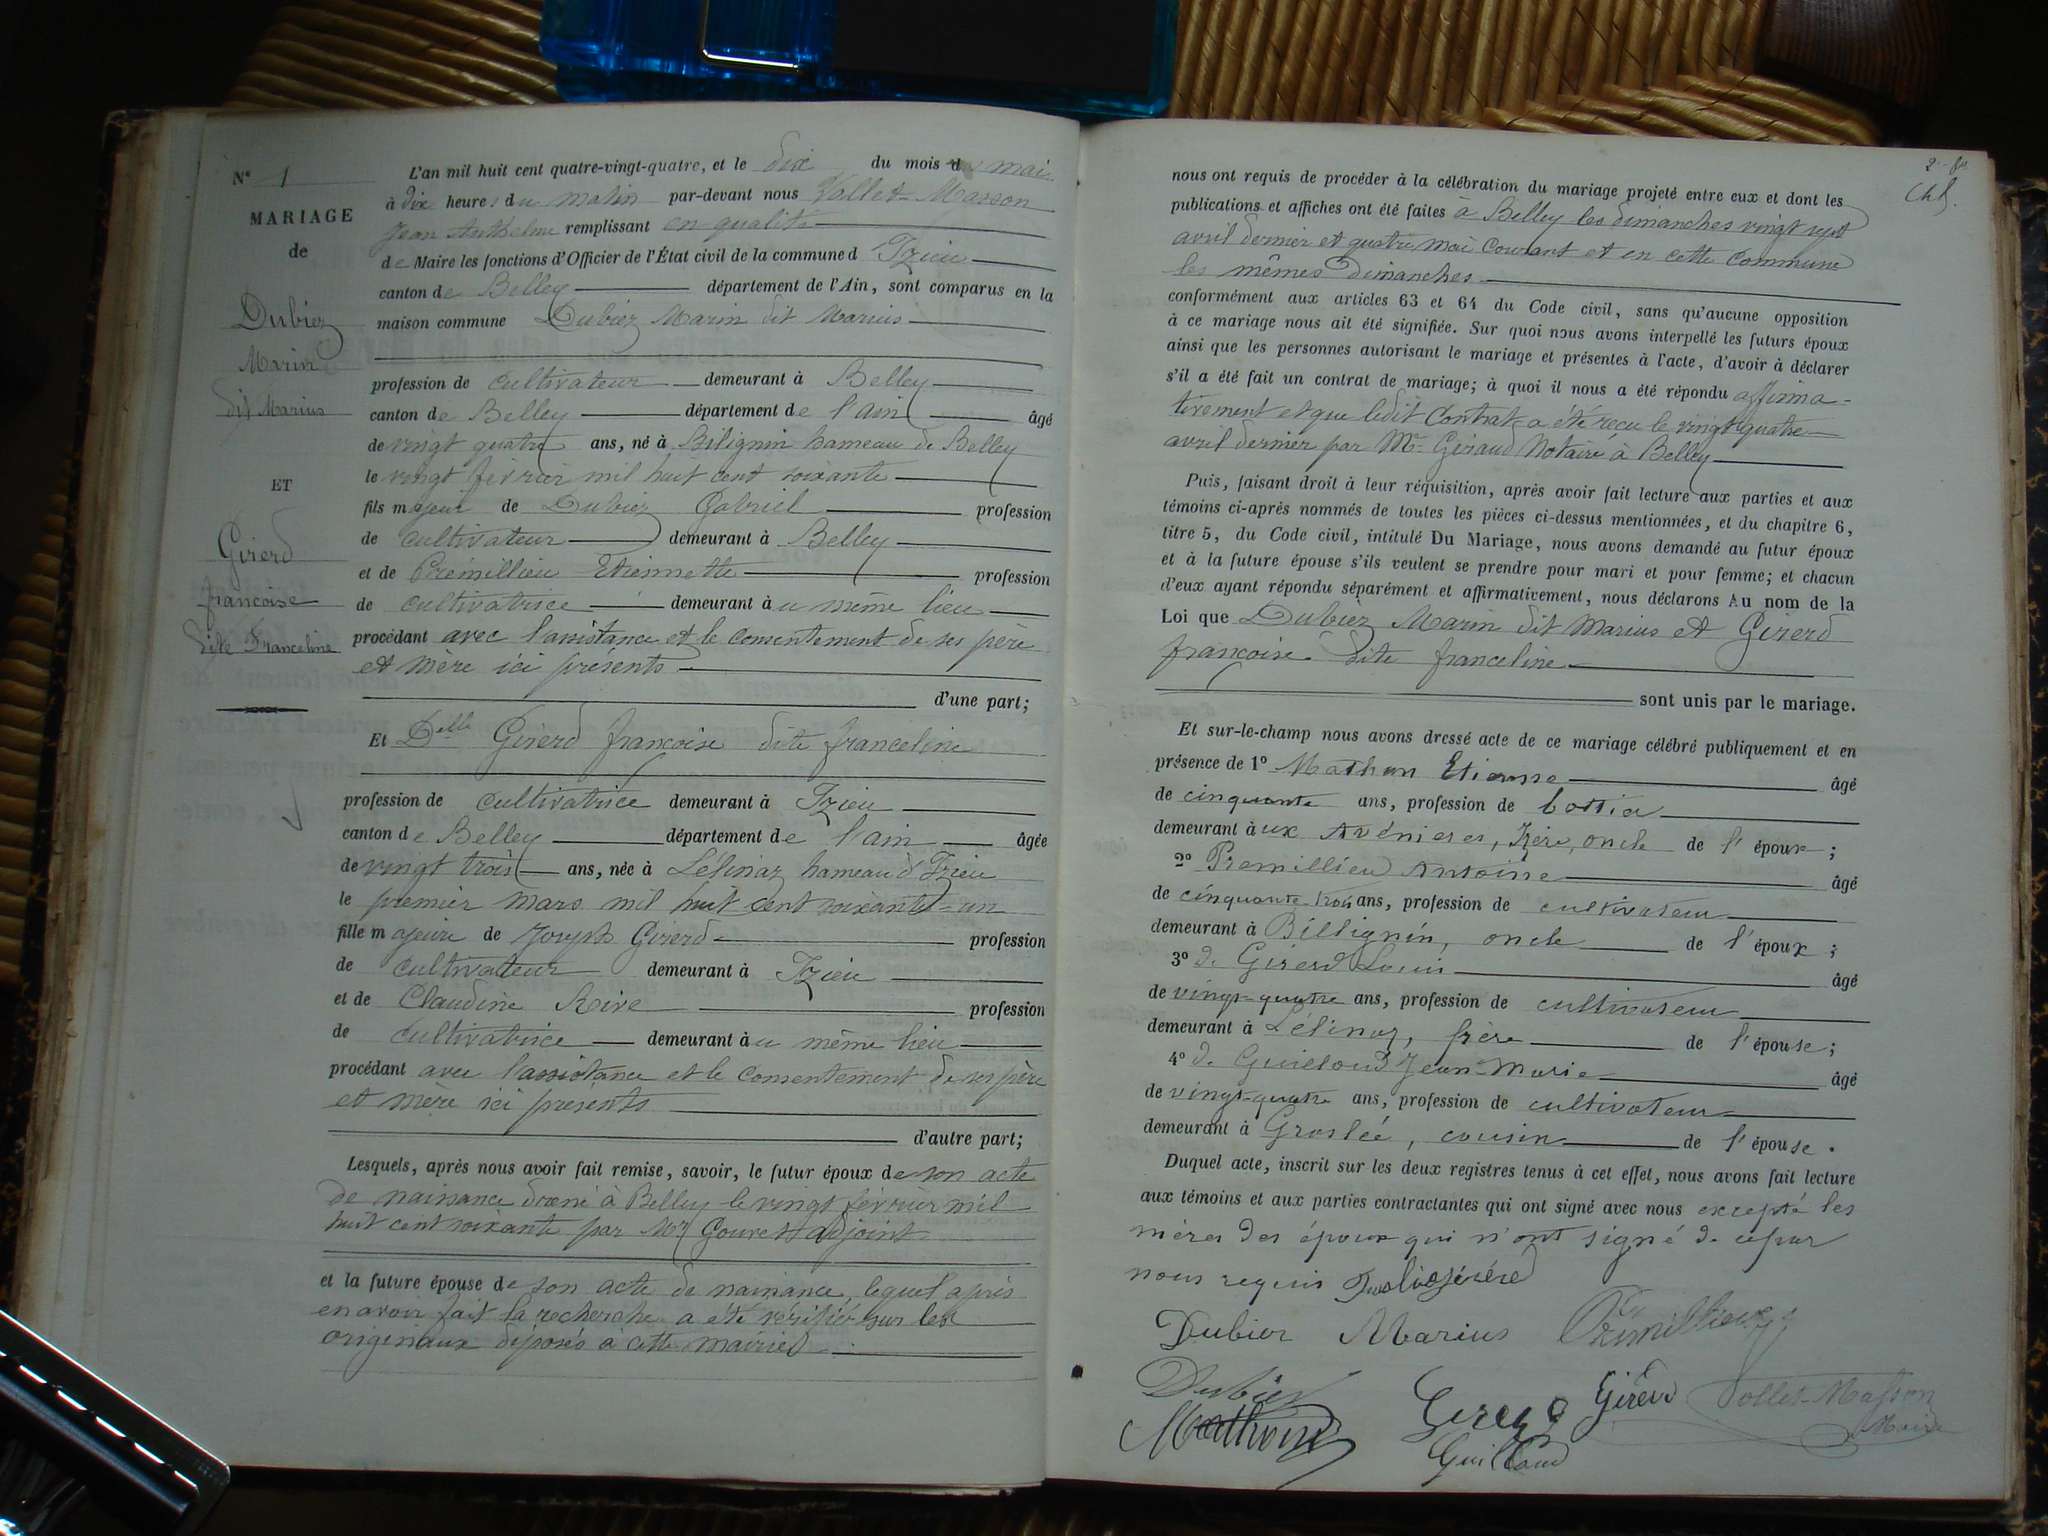 N° 1
MARIAGE
de
Dubiez
Marin
dit Marius
ET
Girerd
francoise
dite Franceline
L'an mil huit cent quatre-vingt-quatre, et le dix du mois de mai
à dix heures du matin par-devant nous Vollet-Masson
Jean Anthelme remplissant en qualité
de Maire les fonctions d'Officier de l'État civil de la commune d'Izieu
canton de Belley département de l'Ain, sont comparus en la
maison commune Dubiez Marin dit Marius
profession de cultivateur demeurant à Belley
canton de Belley département de l'ain âgé
de vingt quatre ans, né à Bilignin hameau de Belley
le vingt fevrier mil huit cent soixante
fils majeur de Dubiez Gabriel profession
de cultivateur demeurant à Belley
et de Prémillieu Etiennette profession
de cultivatrice demeurant au même lieu
procédant avec l'assistance et le consentement de ses père
et mère ici présents
d'une part;
Et Delle Girerd francoise dite franceline
profession de cultivatrice demeurant à Izieu
canton de Belley département de l'ain âgée
de vingt trois ans, née à Lélinaz hameau d'Izieu
le premier mars mil huit cent soixante-un
fille majeure de Joseph Girerd profession
de cultivateur demeurant à Izieu
et de Claudine Roive profession
de cultivatrice demeurant au même lieu
procédant avec l'assistance et le consentement de ses père
et mère ici présents
d'autre part;
Lesquels, après nous avoir fait remise, savoir, le futur époux de son acte
de naissance dressé à Belley le vingt février mil
huit cent soixante par Mr Gouvert adjoint
et la future épouse de son acte de naissance, lequel après
en avoir fait la recherche a été vérifié sur les
originaux déposés à cette mairie
nous ont requis de procéder à la célébration du mariage projeté entre eux et dont les
publications et affiches ont été faites à Belley les dimanches vingt sept
avril dernier et quatre mai courant et en cette commune
les mêmes dimanches
conformément aux articles 63 et 64 du Code civil, sans qu'aucune opposition
à ce mariage nous ait été signifiée. Sur quoi nous avons interpellé les futurs époux
ainsi que les personnes autorisant le mariage et présentes à l'acte, d'avoir à déclarer
s'il a été fait un contrat de mariage; à quoi il nous a été répondu affirma-
tivement et que ledit contrat a été reçu le vingt quatre
avril dernier par Me Giraud Notaire à Belley
Puis, faisant droit à leur réquisition, après avoir fait lecture aux parties et aux
témoins ci-après nommés de toutes les pièces ci-dessus mentionnées, et du chapitre 6,
titre 5, du Code civil, intitulé Du Mariage, nous avons demandé au futur époux
et à la future épouse s'ils veulent se prendre pour mari et pour femme; et chacun
d'eux ayant répondu séparément et affirmativement, nous déclarons Au nom de la
Loi que Dubiez Marin dit Marius et Girerd
francoise dite franceline
sont unis par le mariage.
Et sur-le-champ nous avons dressé acte de ce mariage célébré publiquement et en
présence de 1° Mathon Etienne âgé
de cinquante ans, profession de
demeurant aux Avénieres, Isère, oncle de l'époux;
2° Premillieu Antoine âgé
de cinquante trois ans, profession de cultivateur
demeurant à Billignin, oncle de l'époux;
3° de Girerd Louis âgé
de vingt-quatre ans, profession de cultivateur
demeurant à Lélinaz, frère de l'épouse;
4° de Guilloud Jean-Marie âgé
de vingt-quatre ans, profession de cultivateur
demeurant à Groslée, cousin de l'épouse.
Duquel acte, inscrit sur les deux registres tenus à cet effet, nous avons fait lecture
aux témoins et aux parties contractantes qui ont signé avec nous excepté les
mères des époux qui n'ont signé de ce par
nous requis
Dubiez Marius Prémillieu
Dubiez
Mathon Girerd Girerd Vollet-Masson
Maire
Guilloud